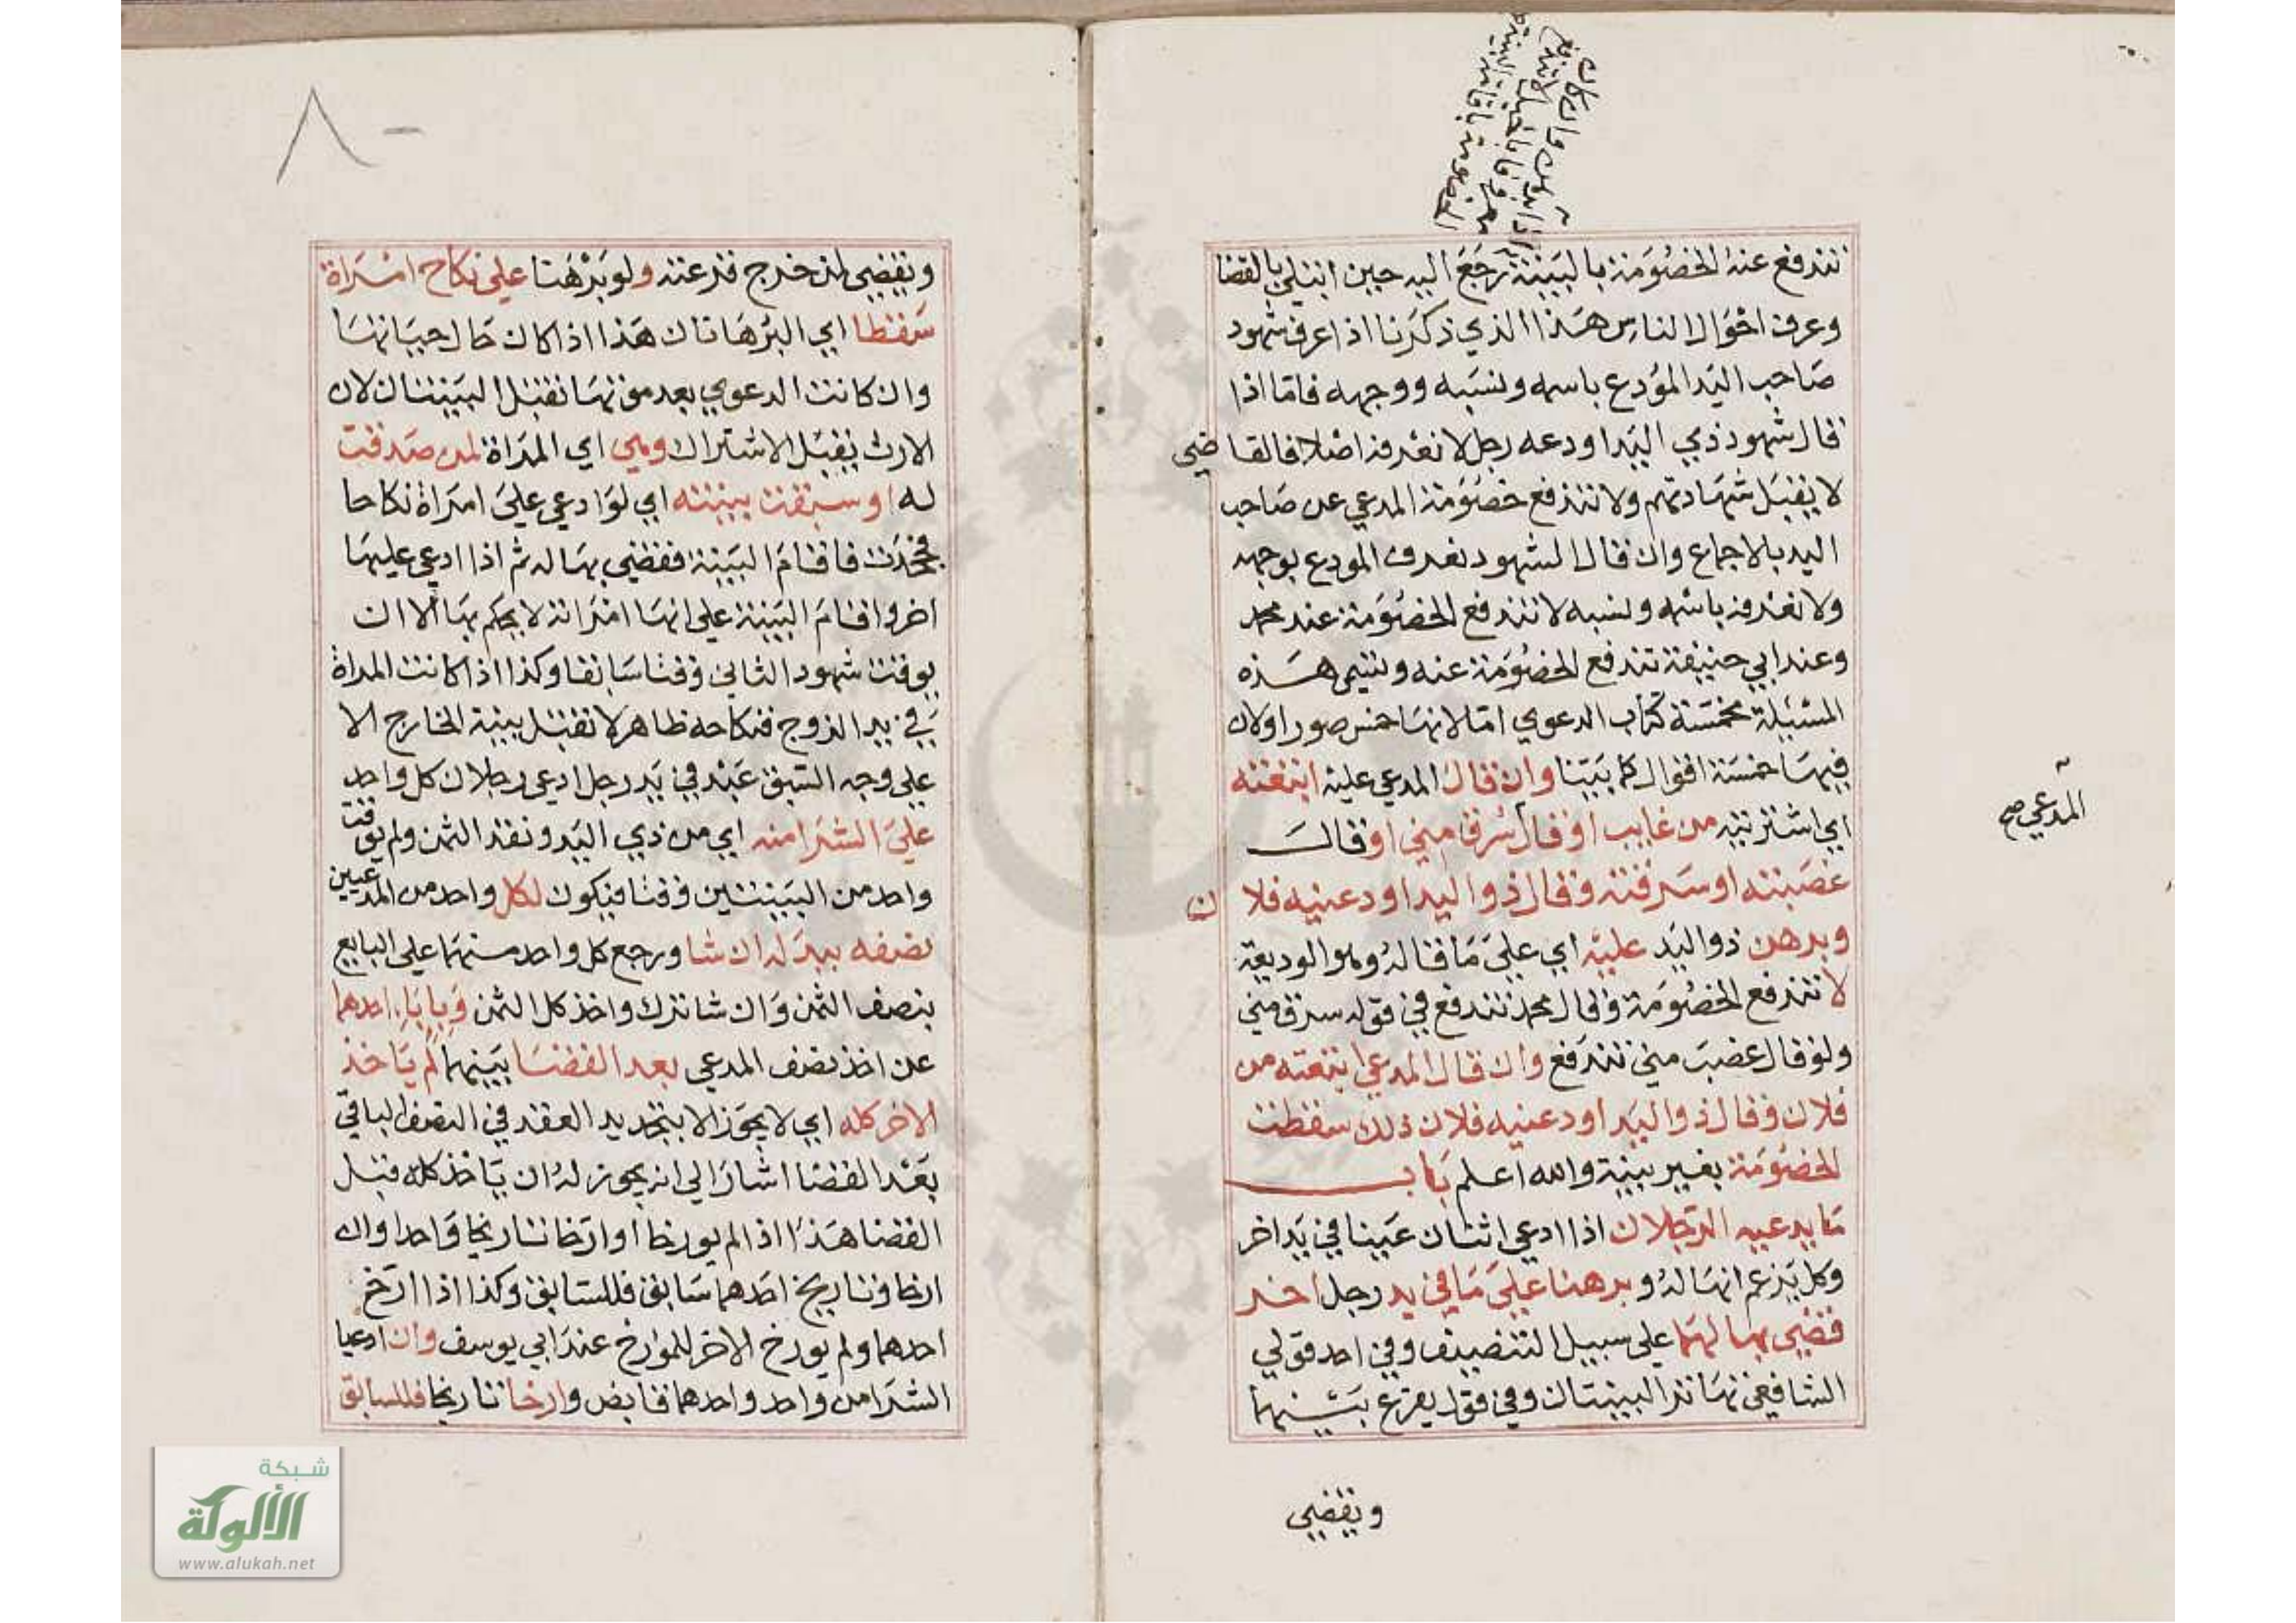 تندفع عنه الخصومة بالبينة رجع اليه حين ابتلي بالقضا
وعرف احوال الناس هذا الذي ذكرنا اذا عرف شهود
صاحب اليد المؤدع باسمه ونسبه ووجهه فاما اذا
قال شهود ذي اليد اودعه رجل لا نعرفه اصلا فالقاضي
لا يقبل شهادتهم ولا تندفع خصومة المدعي عن صاحب
اليد بالاجماع وان قال الشهود نعرف المودع بوجهه
ولا نعرفه باسمه ونسبه لا تندفع الخصومة عند محمد
وعند ابي حنيفة تندفع الخصومة عنه وتسمى هذه
المسئلة مخمسة كتاب الدعوي اما لانها خمس صور او لان
فيها خمسة اقوال كما بينا وان قال المدعي عليه ابتعته
اي اشتريته من غايب او قال سرق مني او قال
غصبته او سرقته وقال ذو اليد اودعنيه فلان
وبرهن ذو اليد عليه اي علي ما قاله وهو الوديعة
لا تندفع الخصومة وقال محمد تندفع في قوله سرق مني
ولو قال غصب مني تندفع وان قال المدعي ابتعته من
فلان وقال ذو اليد اودعنيه فلان ذلك سقطت
الخصومة بغير بينة والله اعلم باب
ما يدعيه الرجلان اذا ادعي اثنان عينا في يد اخر
وكل يزعم انها له وبرهنا علي ما في يد رجل اخر
قضي بها لهما علي سبيل التنصيف وفي احد قولي
الشافعي تهاتر البينتان وفي قول يقرع بينهما
ويقضي
المدعي صح
٨٠
ويقضي لمن خرج قرعته ولو برهنا علي نكاح امراة
سقطا اي البرهانان هذا اذا كان حال حياتها
وان كانت الدعوي بعد موتها تقبل البينتان لان
الارث يقبل الاشتراك وهي اي المراة لمن صدقت
له او سبقت بينته اي لو ادعي علي امراة نكاحا
فجحدت فاقام البينة فقضي بها له ثم اذا ادعي عليها
اخر واقام البينة علي انها امراته لا يحكم بها الا ان
يوقت شهود الثاني وقتا سابقا وكذا اذا كانت المراة
في يد الزوج فنكاحه ظاهر لا تقبل بينة الخارج الا
علي وجه السبق عبد في يد رجل ادعي رجلان كل واحد
علي الشرا منه اي من ذي اليد ونقد الثمن ولم يوقت
واحد من البينتين وقتا فيكون لكل واحد من المدعيين
نصفه ببدله ان شا ورجع كل واحد منهما علي البايع
بنصف الثمن وان شا ترك واخذ كل الثمن وبابا احدهما
عن اخذ نصف المدعي بعد القضا بينهما لم ياخذ
الاخر كله اي لا يجوز الا بتجديد العقد في النصف الباقي
بعد القضا اشار الي انه يجوز له ان ياخذ كله قبل
القضا هذا اذا لم يورخا او ارخا تاريخا واحدا وان
ارخا وتاريخ احدهما سابق فللسابق وكذا اذا ارخ
احدهما ولم يورخ الاخر للمورخ عند ابي يوسف وان ادعيا
الشرا من واحد واحدهما قابض وارخا تاريخا فللسابق
شبكة
الألوكة
www.alukah.net